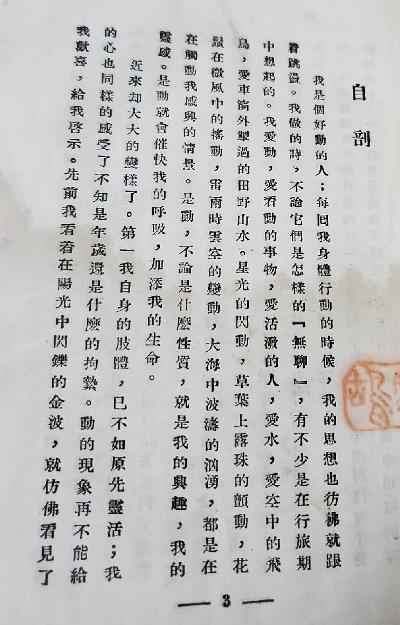 自剖
我是個好動的人；每回我身體行動的時候，我的思想也彷彿就跟
着跳盪。我做的詩，不論它們是怎樣的「無聊」，有不少是在行旅期
中想起的。我愛動，愛看動的事物，愛活潑的人，愛水，愛空中的飛
鳥，愛車窗外掣過的田野山水。星光的閃動，草葉上露珠的顫動，花
鬚在微風中的搖動，雷雨時雲空的變動，大海中波濤的洶湧，都是在
在觸動我感興的情景。是動，不論是什麼性質，就是我的興趣，我的
靈感。是動就會催快我的呼吸，加添我的生命。
近來却大大的變樣了。第一我自身的肢體，已不如原先靈活；我
的心也同樣的感受了不知是年歲還是什麼的拘縶。動的現象再不能給
我歡喜，給我啓示。先前我看着在陽光中閃爍的金波，就仿佛看見了
— 3 —